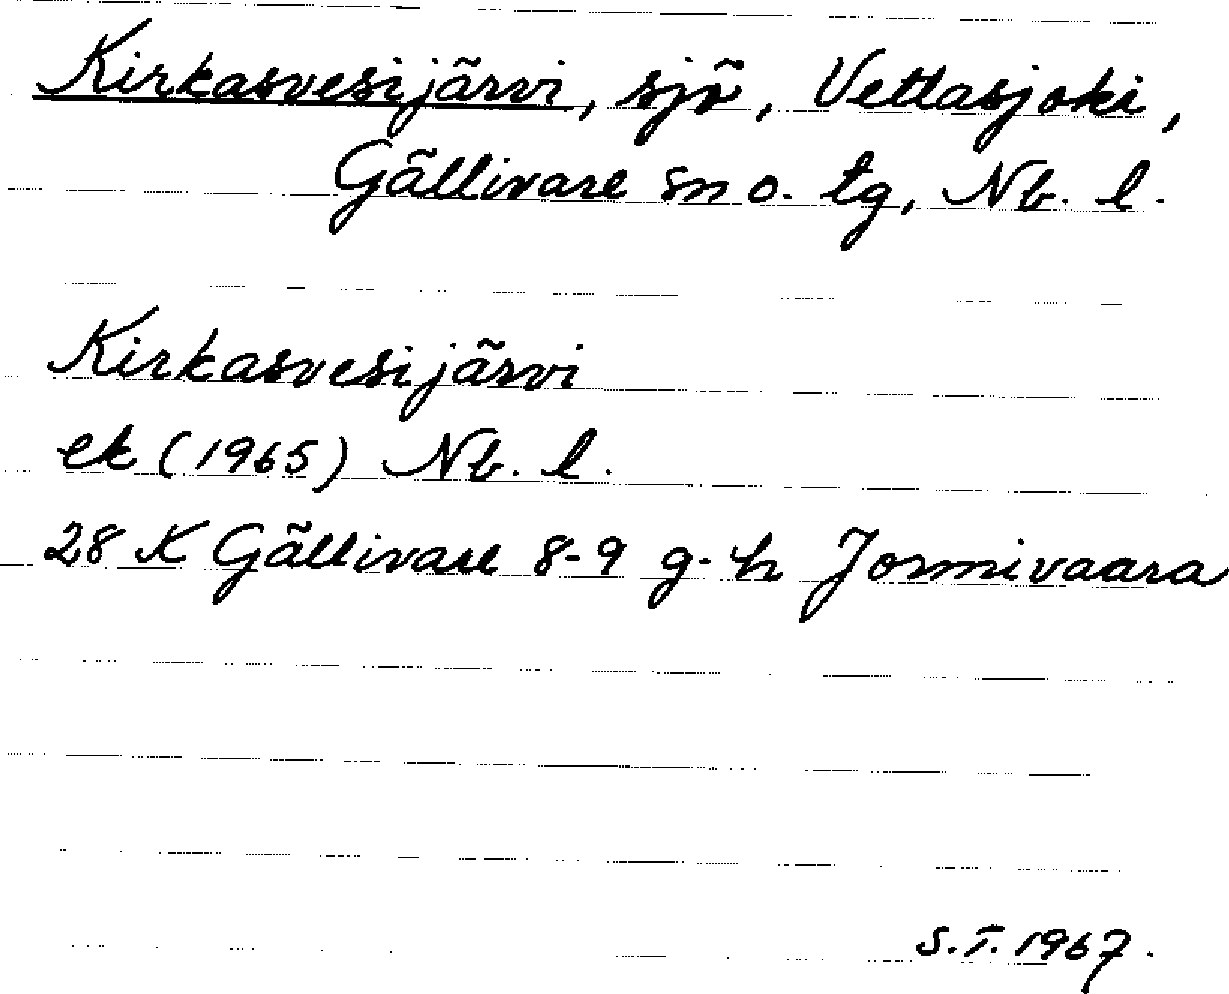 Kirkasvesijärvi, sjö, Vettasjoki,
Gällivare sn o. tg, Nb. l.
Kirkasvesijärvi
ek (1965) Nb. l.
28 K Gällivare 8-9 g-h Jormivaara
S.T. 1967.